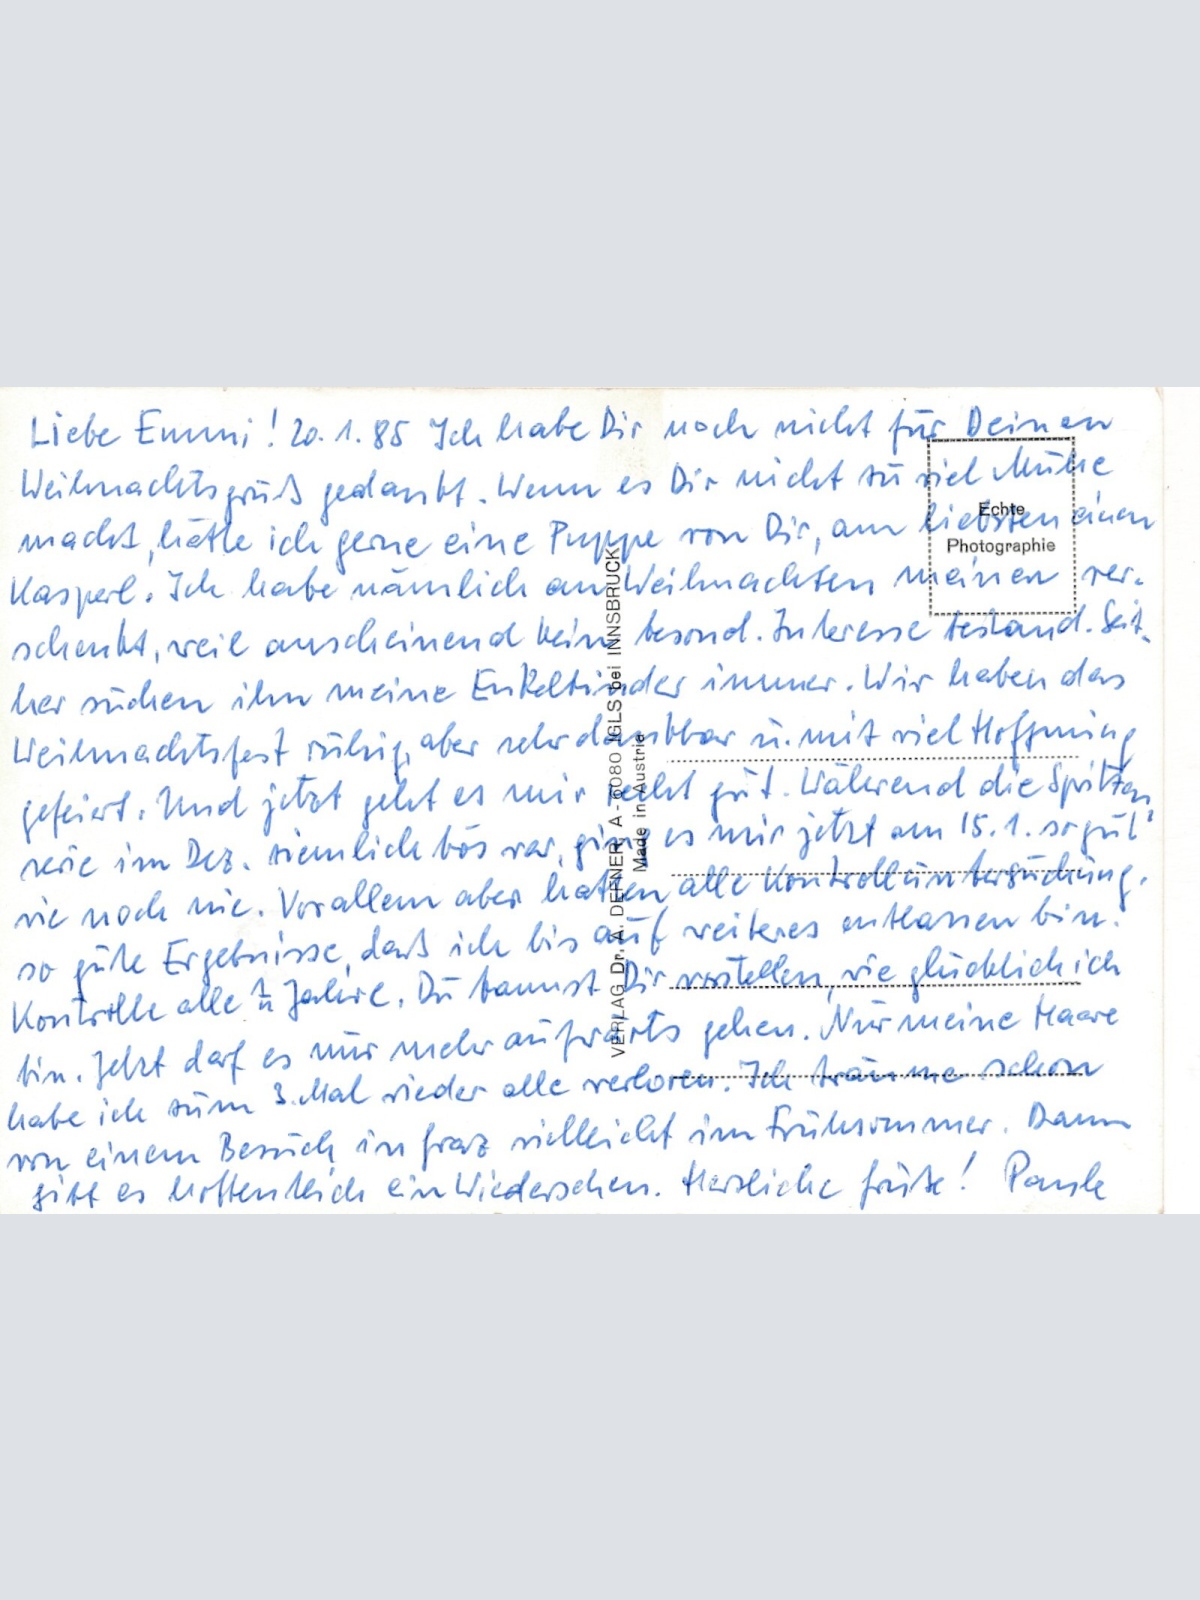 Liebe Emmi! 20.1.85 Ich habe Dir noch nicht für Deinen
Weihnachtsgruß gedankt. Wenn es Dir nicht zu viel Mühe
macht, hätte ich gerne eine Puppe von Dir, am liebsten einen
Kasperl. Ich habe nämlich an Weihnachten meinen ver-
schenkt, weil anscheinend kein besond. Interesse bestand. Seit-
her suchen ihn meine Enkelkinder immer. Wir haben das
Weihnachtsfest ruhig, aber sehr dankbar u. mit viel Hoffnung
gefeiert. Und jetzt geht es mir recht gut. Während die Spritzen
serie im Dez. ziemlich bös war, ging es mir jetzt am 15.1. so gut
wie noch nie. Vor allem aber hatten alle Kontrolluntersuchung.
so gute Ergebnisse, daß ich bis auf weiteres entlassen bin.
Kontrolle alle Jahre. Du kannst Dir vorstellen, wie glücklich ich
bin. Jetzt darf es nur mehr aufwärts gehen. Nur meine Haare
habe ich zum 3. Mal wieder alle verloren. Ich träume schon
von einem Besuch in Graz vielleicht im Frühsommer. Dann
gibt es hoffentlich ein Wiedersehen. Herzliche Grüße! Paula
Echte
Photographie
VERLAG Dr. A. DEFNER, A - 6080 IGLS bei INNSBRUCK
Made in Austria